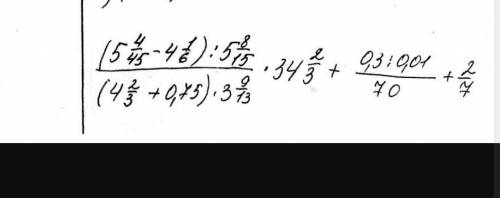 (5 4/45 - 4 1/6) : 5 8/15
(4 2/3 + 0,75) · 3 9/13
· 34 2/3 + 0,3 : 0,01 / 70 + 2/7